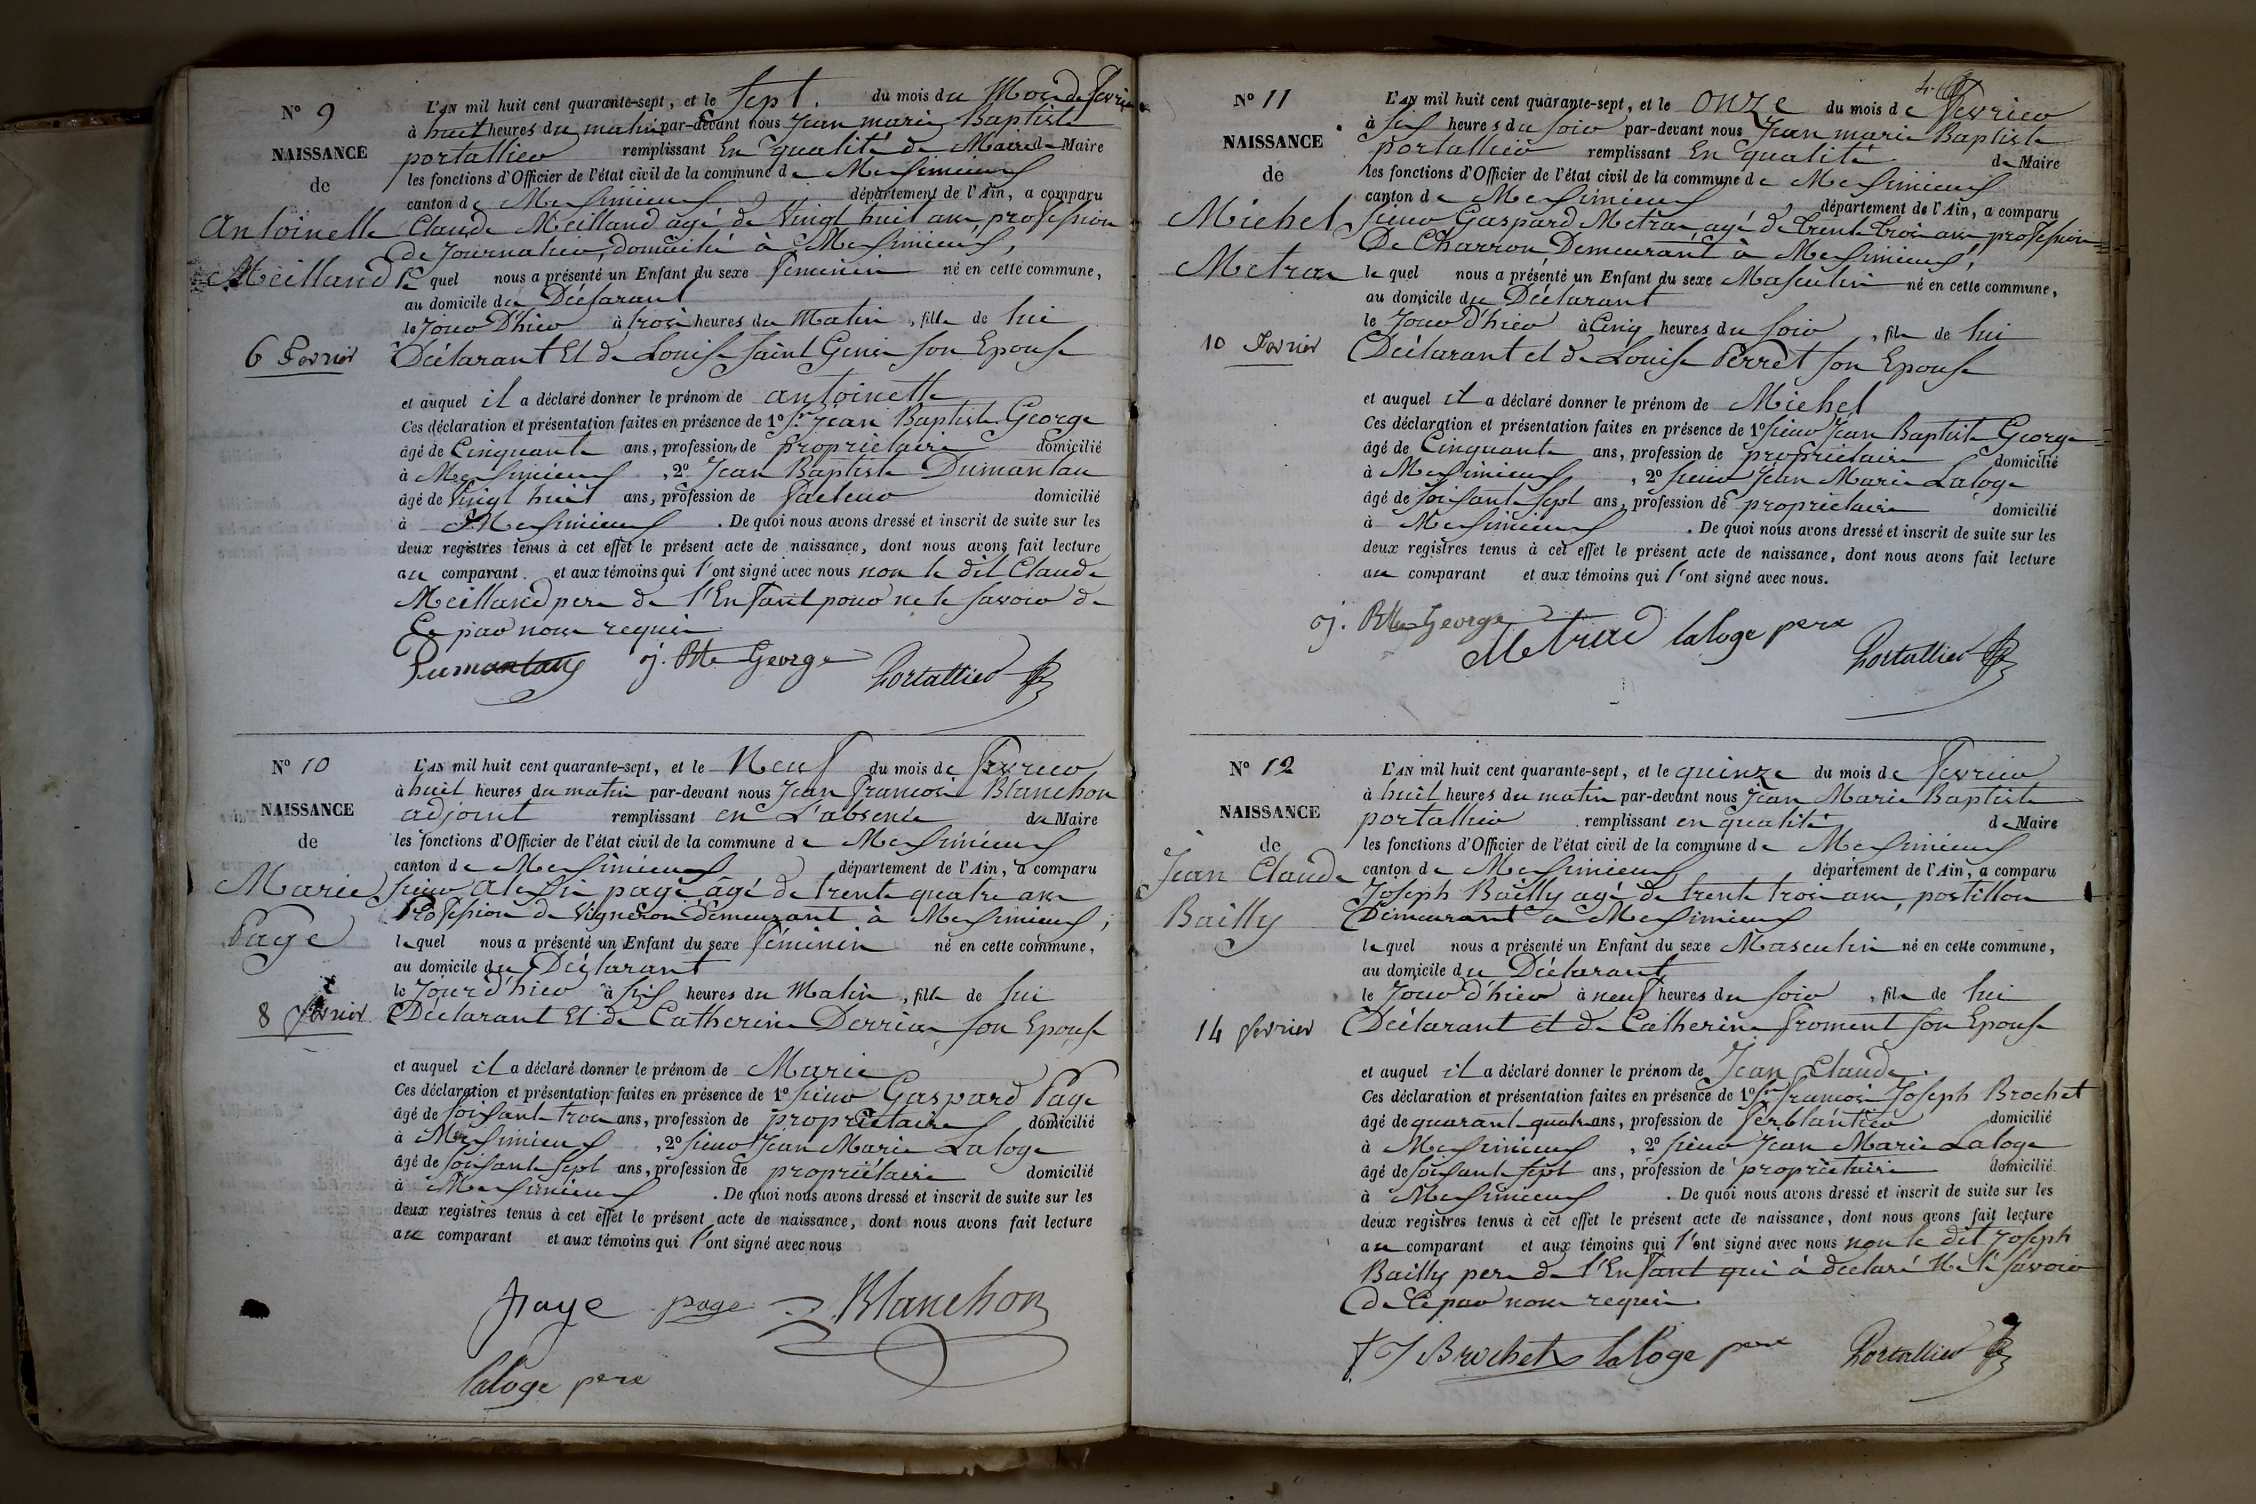 N° 9
NAISSANCE
de
Antoinette
Meilland
6 Fevrier
L'AN mil huit cent quarante-sept, et le Sept. du mois du Mois de Fevrier
à huit heures du matin par-devant nous Jean marie Baptiste
portallier remplissant En qualité de Maire de Maire
les fonctions d'Officier de l'état civil de la commune de Messimieux
canton de Messimieux département de l'Ain, a comparu
Claude Meilland agé de Vingt huit ans profession
de Journalier, domicilié à Messimieux,
le quel nous a présenté un Enfant du sexe Féminin né en cette commune,
au domicile du Déclarant
le Jour D'hier à trois heures du Matin, fille de lui
Déclarant Et de Louise Saint Genis son Epouse
et auquel il a déclaré donner le prénom de antoinette
Ces déclaration et présentation faites en présence de 1° Sr. Jean Baptiste George
âgé de Cinquante ans, profession de propriétaire domicilié
à Messimieux, 2° Jean Baptiste Dumantau
âgé de Vingt huit ans, profession de facteur domicilié
à Messimieux. De quoi nous avons dressé et inscrit de suite sur les
deux registres tenus à cet effet le présent acte de naissance, dont nous avons fait lecture
au comparant et aux témoins qui l'ont signé avec nous non le dit Claude
Meilland pere de l'Enfant pour ne le savoir de
Ce par nous requis
Dumantau j. Bte George Portallier
N° 10
NAISSANCE
de
Marie
Page
8 fevrier
L'AN mil huit cent quarante-sept, et le Neuf du mois de Fevrier
à huit heures du matin par-devant nous Jean francois Blanchon
adjoint remplissant en L'absence du Maire
les fonctions d'Officier de l'état civil de la commune de Messimieux
canton de Messimieux département de l'Ain, a comparu
sieur page âgé de trente quatre ans
Profession de Vigneron demeurant à Messimieux,
le quel nous a présenté un Enfant du sexe Féminin né en cette commune,
au domicile du Déclarant
le Jour d'hier à six heures du Matin, fille de lui
Déclarant Et de Catherine Derrias son Epouse
et auquel il a déclaré donner le prénom de Marie
Ces déclaration et présentation faites en présence de 1° sieur Gaspard Page
âgé de soixante trois ans, profession de propriétaire domicilié
à Messimieux, 2° sieur Jean Marie Laloge
âgé de soixante sept ans, profession de propriétaire domicilié
à Messimieux. De quoi nous avons dressé et inscrit de suite sur les
deux registres tenus à cet effet le présent acte de naissance, dont nous avons fait lecture
au comparant et aux témoins qui l'ont signé avec nous
page page Blanchon
laloge pere
N° 11
NAISSANCE
de
Michel
Metras
10 Fevrier
L'AN mil huit cent quarante-sept, et le onze du mois de Fevrier
à six heures du soir par-devant nous Jean marie Baptiste
portallier remplissant En qualité de Maire
les fonctions d'Officier de l'état civil de la commune de Messimieux
canton de Messimieux, département de l'Ain, a comparu
sieur Gaspard Metras agé de trente trois ans profession
De Charron Demeurant à Messimieux,
le quel nous a présenté un Enfant du sexe Masculin né en cette commune,
au domicile du Déclarant
le Jour d'hier à Cinq heures du soir, fils de lui
Déclarant et de Louise Perret son Epouse
et auquel il a déclaré donner le prénom de Michel
Ces déclaration et présentation faites en présence de 1° sieur Jean Baptiste George
âgé de Cinquante ans, profession de propriétaire domicilié
à Messimieux, 2° sieur Jean Marie Laloge
âgé de soixante sept ans, profession de propriétaire domicilié
à Messimieux. De quoi nous avons dressé et inscrit de suite sur les
deux registres tenus à cet effet le présent acte de naissance, dont nous avons fait lecture
au comparant et aux témoins qui l'ont signé avec nous.
j. Bte George Metras laloge pere Portallier
N° 12
NAISSANCE
de
Jean Claude
Bailly
14 fevrier
L'AN mil huit cent quarante-sept, et le quinze du mois de Fevrier
à huit heures du matin par-devant nous Jean Marie Baptiste
portallier remplissant en qualité de Maire
les fonctions d'Officier de l'état civil de la commune de Messimieux
canton de Messimieux département de l'Ain, a comparu
Joseph Bailly agé de trente trois ans, postillon
Demeurant a Messimieux
le quel nous a présenté un Enfant du sexe Masculin né en cette commune,
au domicile du Déclarant
le Jour d'hier à neuf heures du soir, fils de lui
Déclarant et de Catherine froment son Epouse
et auquel il a déclaré donner le prénom de Jean Claude.
Ces déclaration et présentation faites en présence de 1° Sr. francois Joseph Brochet
âgé de quarante quatre ans, profession de ferblantier domicilié
à Messimieux, 2° sieur Jean Marie Laloge
âgé de soixante sept ans, profession de propriétaire domicilié
à Messimieux. De quoi nous avons dressé et inscrit de suite sur les
deux registres tenus à cet effet le présent acte de naissance, dont nous avons fait lecture
au comparant et aux témoins qui l'ont signé avec nous non le dit Joseph
Bailly pere de l'Enfant qui à declaré Ne le savoir
de Ce par nous requis.
f J Brochet laloge pere Portallier